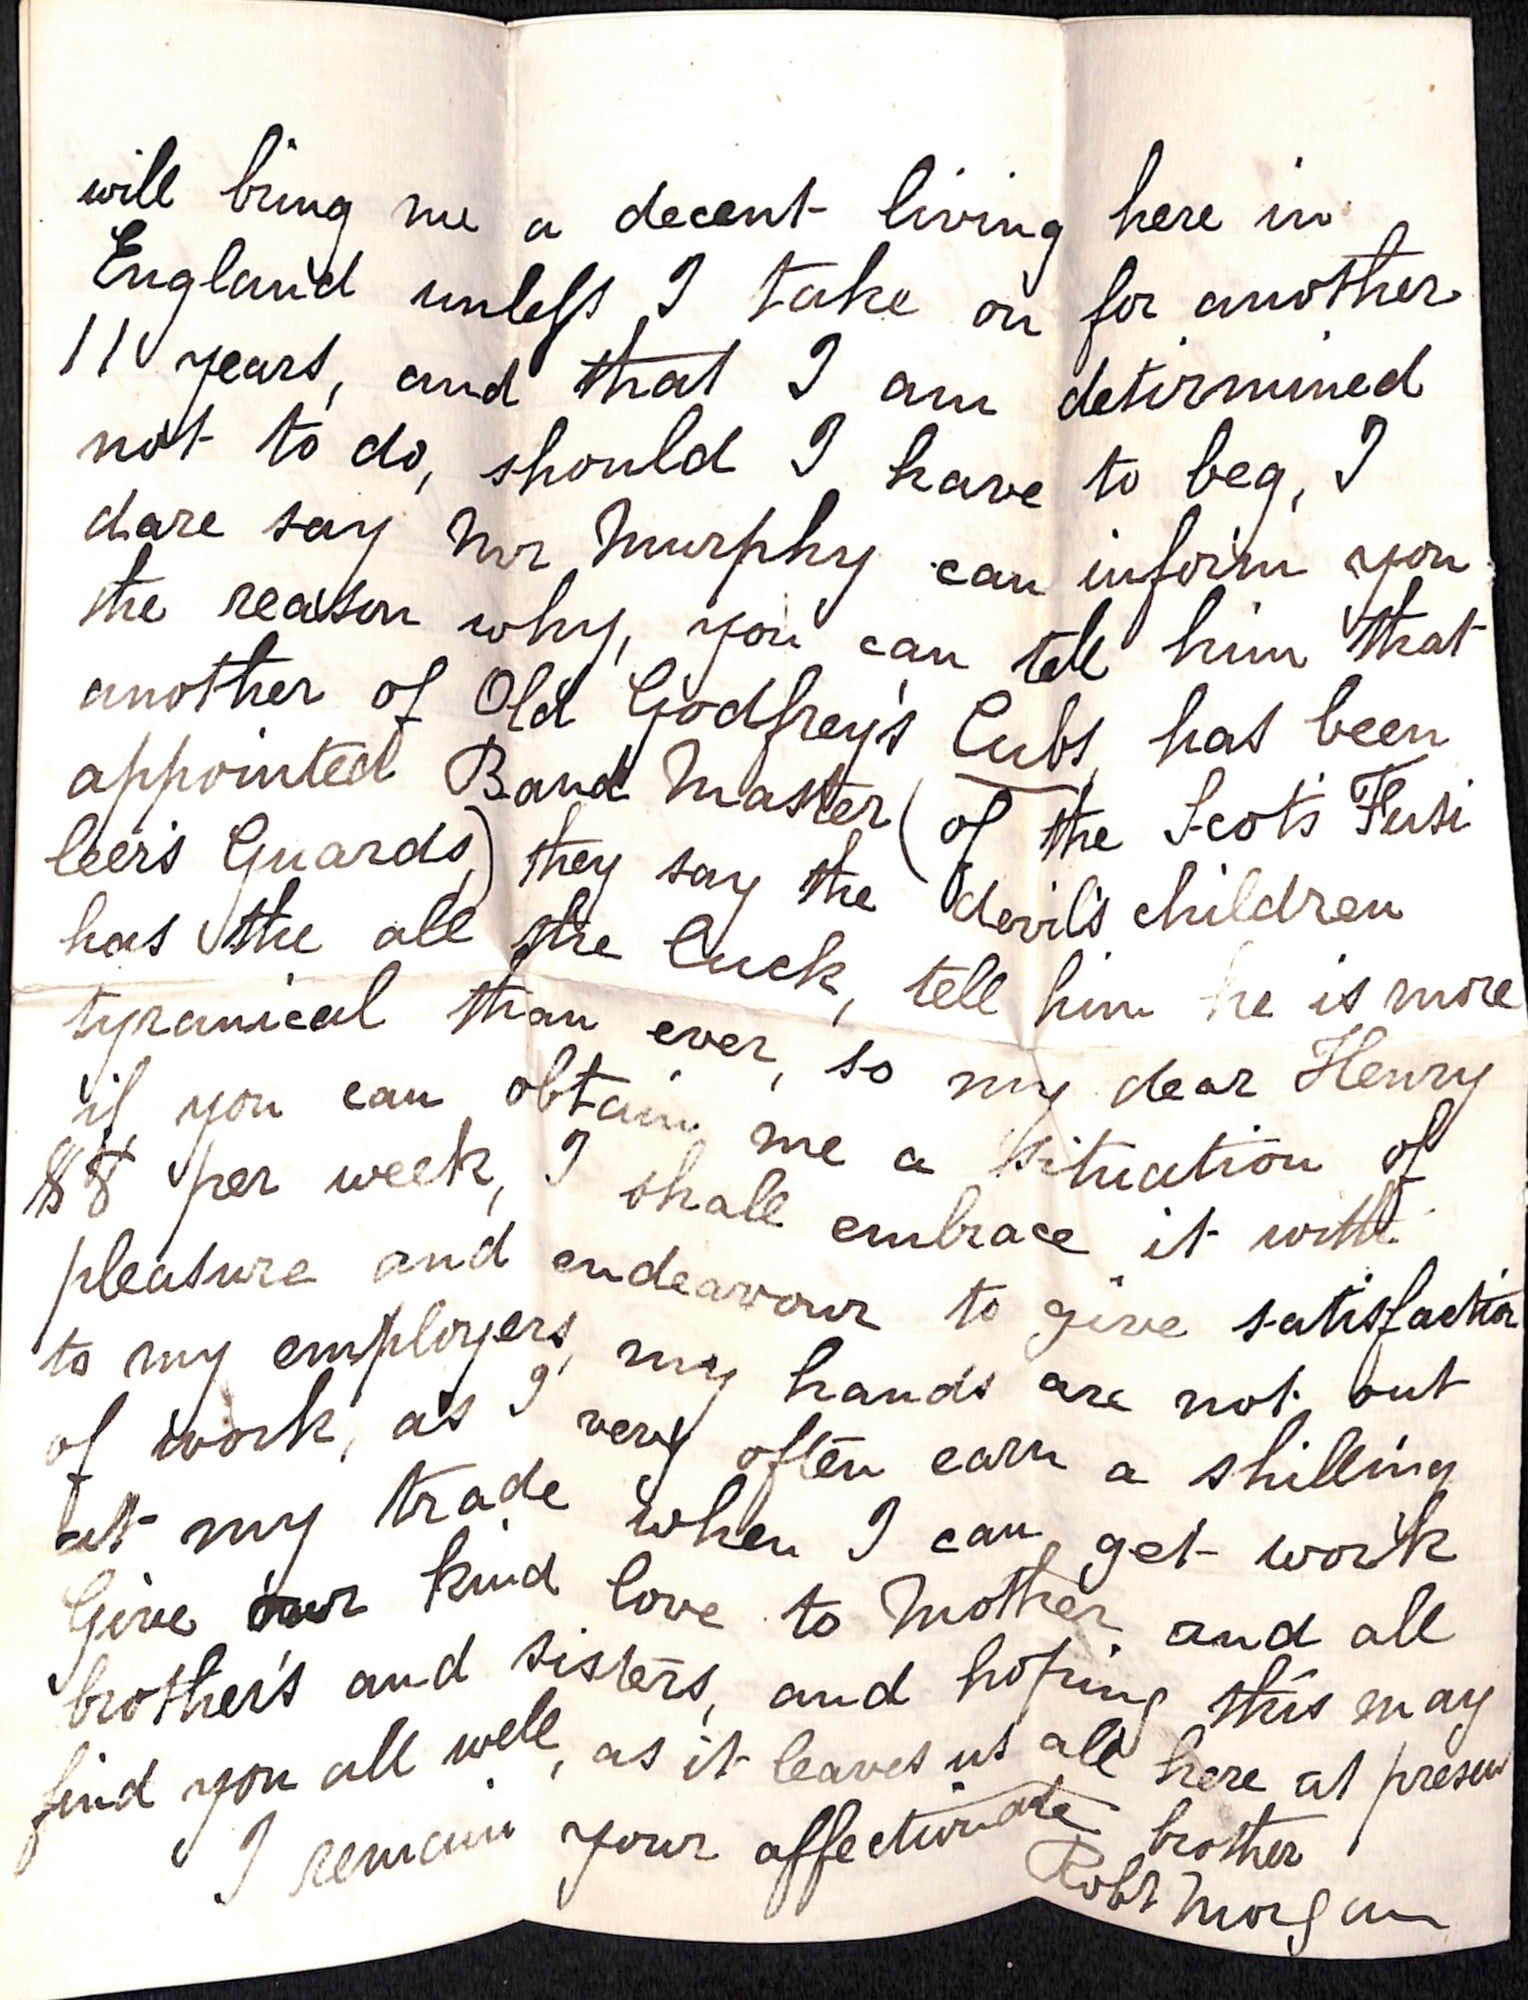 will bring me a decent living here in
England unless I take on for another
11 years, and that I am detirmined
not to do, should I have to beg, I
dare say Mr Murphy can inform you
the reason why, you can tell him that
another of Old Godfrey's Cubs has been
appointed Band Master (of the Scots Fusi
leers Guards,) they say the devil's children
has the all the luck, tell him he is more
tyranical than ever, so my dear Henry
if you can obtain me a situation of
$8 per week, I shall embrace it with
pleasure and endeavour to give satisfaction
to my employers, my hands are not out
of work, as I very often earn a shilling
at my trade when I can get work
Give our kind love to Mother and all
brother's and sisters, and hoping this may
find you all well, as it leaves us all here at present
I remain your affectionate brother
Robt Morgan